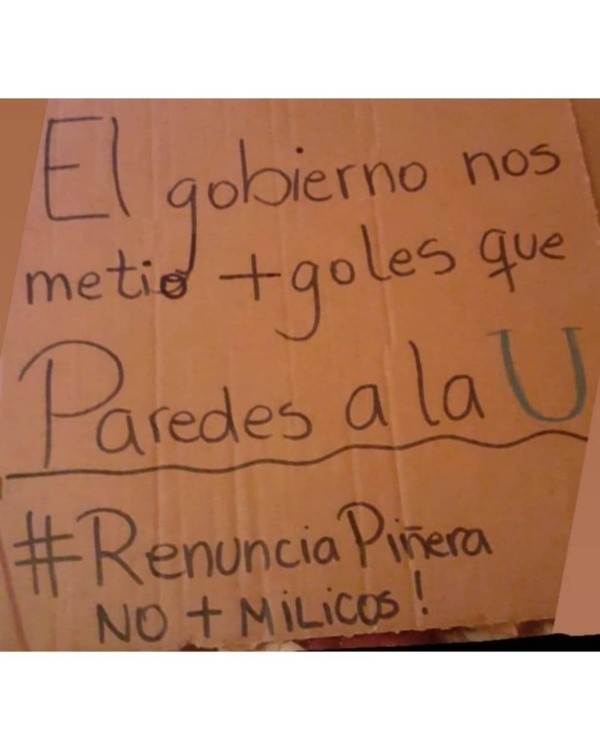 El gobierno nos
metio +goles que
Paredes a la U
#RenunciaPiñera
NO + MiLiCOS!